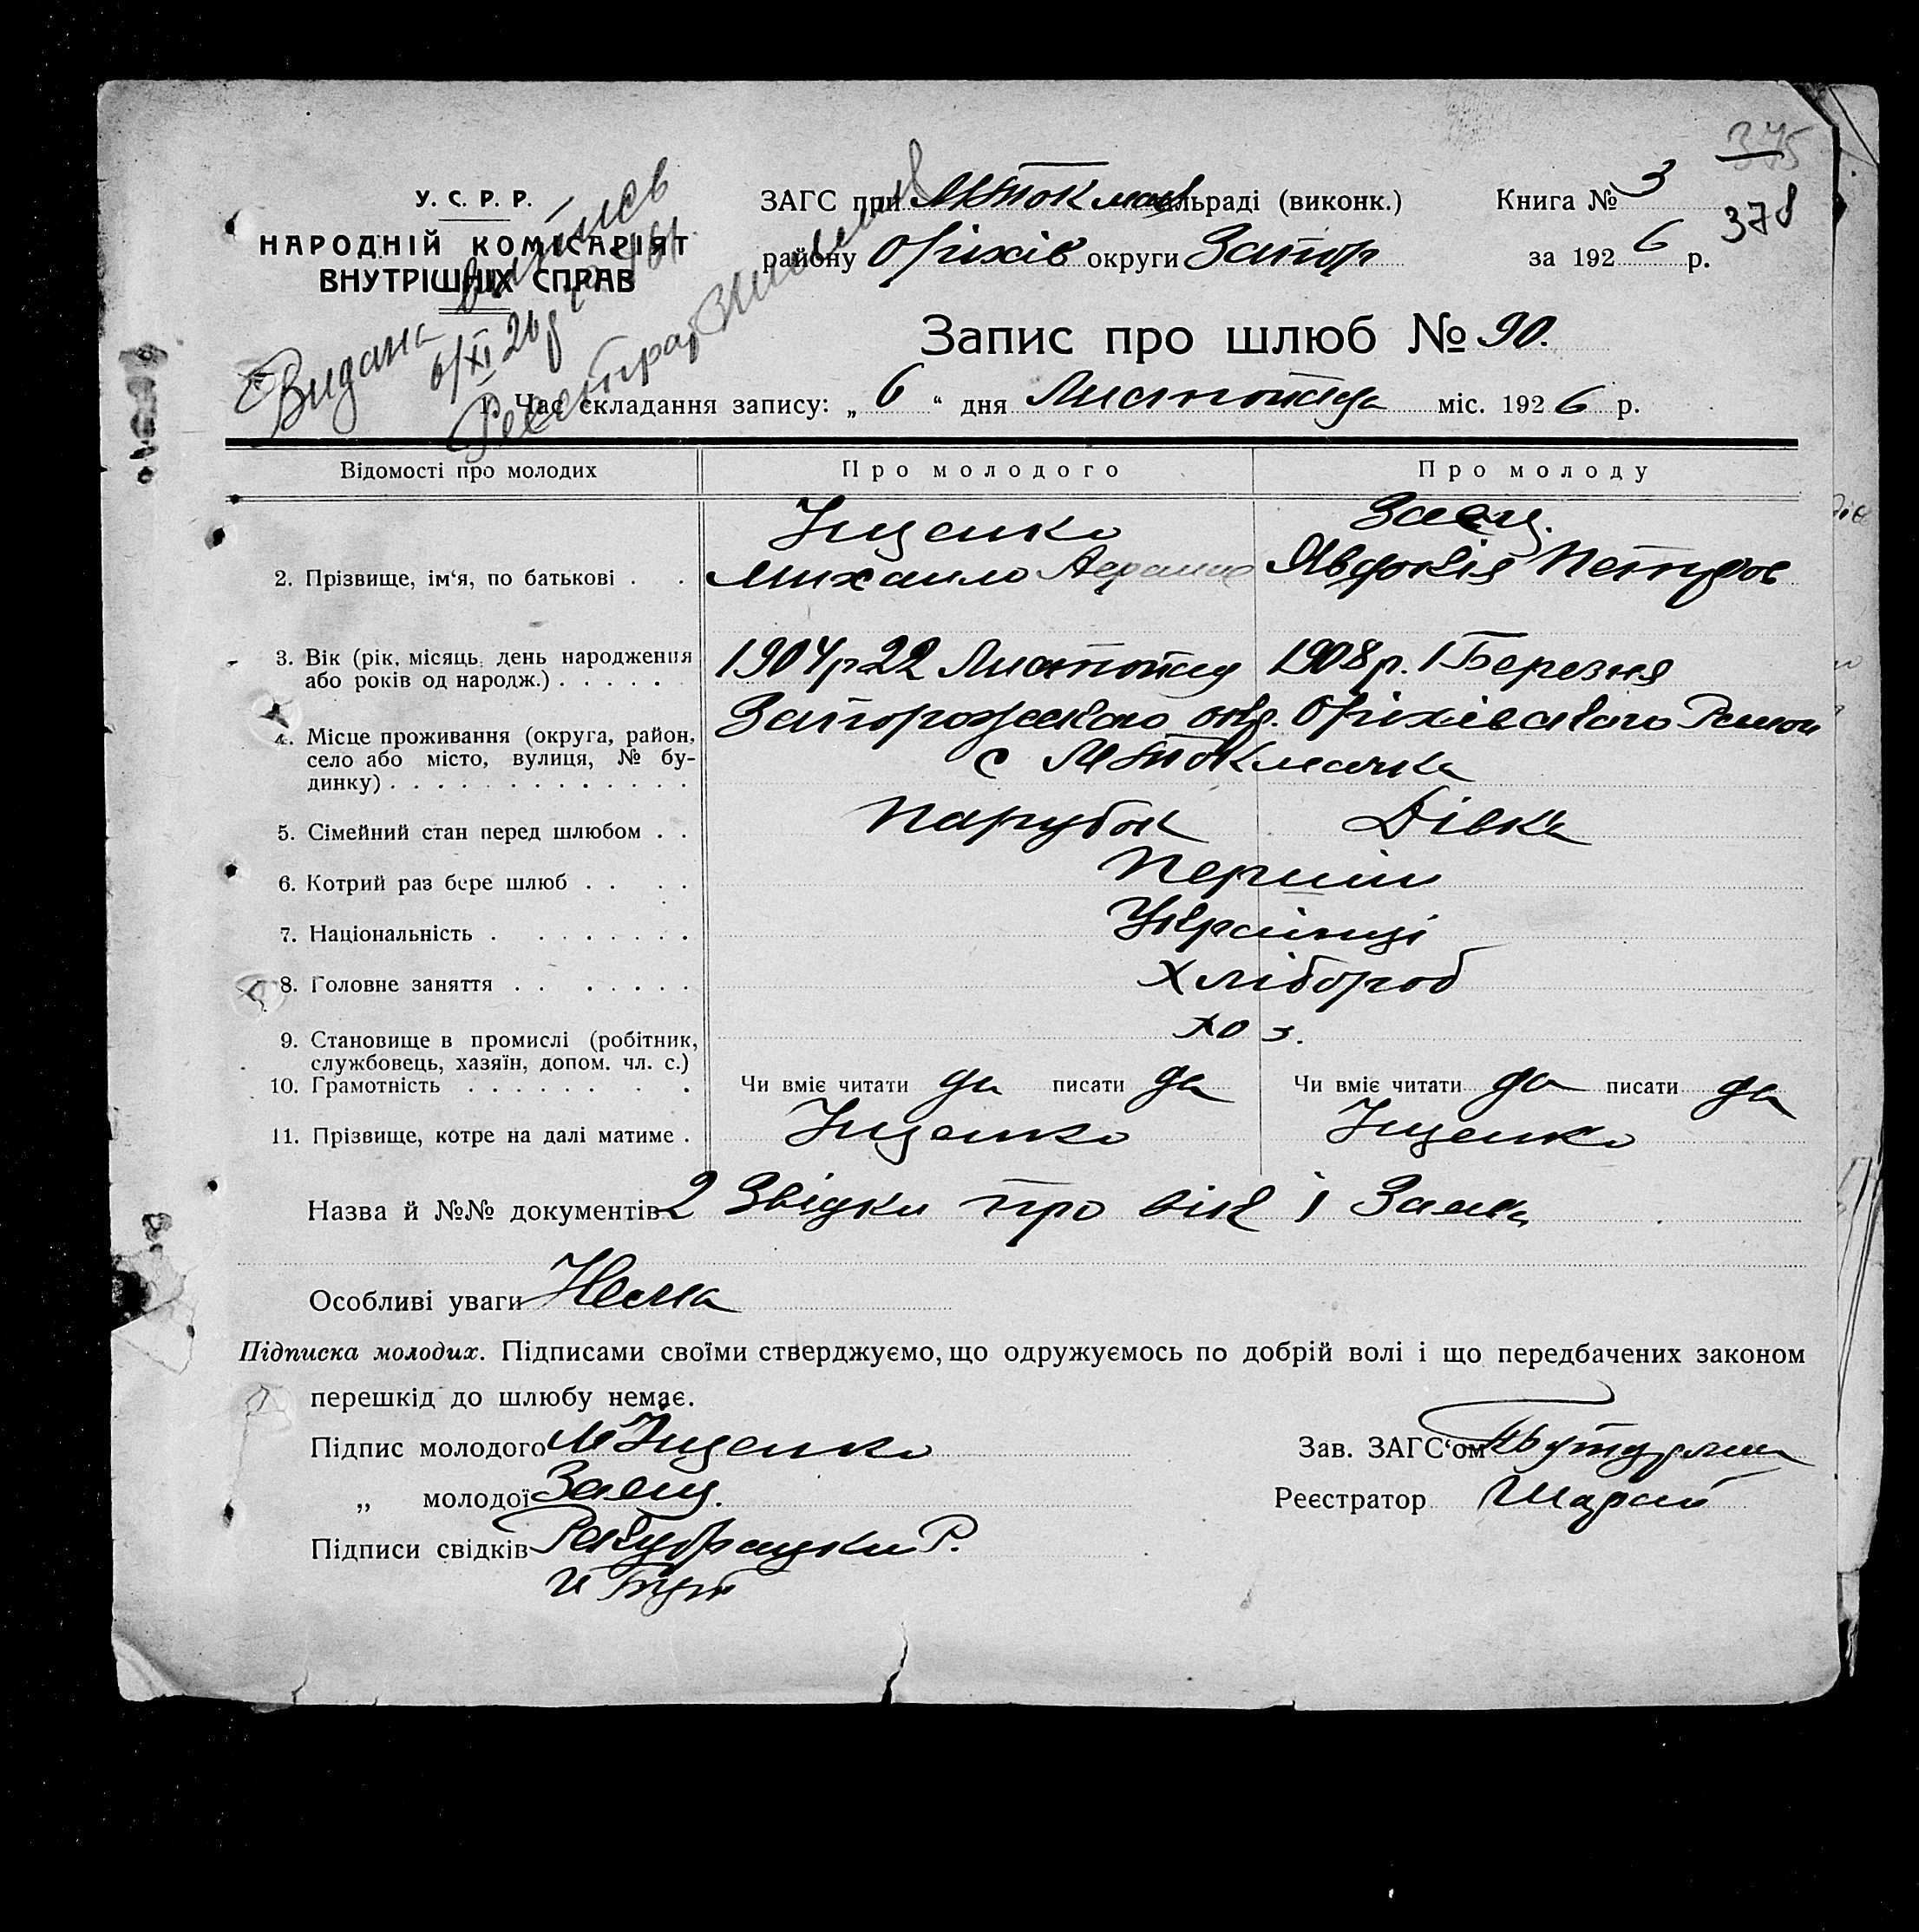 375
378
У. С. Р. Р.
НАРОДНІЙ КОМІСАРІЯТ
ВНУТРІШНІХ СПРАВ
Видана выпись
6/XI 26 р
Реєстратор
ЗАГС при М Токмац льраді (виконк.)
Книга № 3
району Оріхів округи Запор
за 1926 р.
Запис про шлюб № 90.
1. Час складання запису: „ 6 “ дня Листопада міс. 1926 р.
Відомості про молодих
Про молодого
Про молоду
2. Прізвище, ім‘я, по батькові . .
Іщенко
Михаило
Заец.
Явдокія Петров
3. Вік (рік, місяць, день народження
або років од народж.) . . . . . .
1904 р 22 Листопад
1908 р. 1 Березня
4. Місце проживання (округа, район,
село або місто, вулиця, № бу-
динку) . . . . . . . . . . . . . .
Запорожського окр. Оріхівського Район
с М Токмачка
5. Сімейний стан перед шлюбом . .
Парубок
Дівка
6. Котрий раз бере шлюб . . . .
Перший
7. Національність . . . . . . . .
Українці
8. Головне заняття . . . . . . . .
Хлібороб
9. Становище в промислі (робітник,
службовець, хазяїн, допом. чл. с.)
хоз.
10. Грамотність . . . . . . . .
Чи вміє читати да писати да
Чи вміє читати да писати да
11. Прізвище, котре на далі матиме .
Іщенко
Іщенко
Назва й №№ документів 2 Звідки про вік і Заява
Особливі уваги Нема
Підписка молодих. Підписами своїми стверджуємо, що одружуємось по добрій волі і що передбачених законом
перешкід до шлюбу немає.
Підпис молодого М Іщенко
Зав. ЗАГС‘ом
„ молодої Заец.
Реєстратор Шарай
Підписи свідків Р.